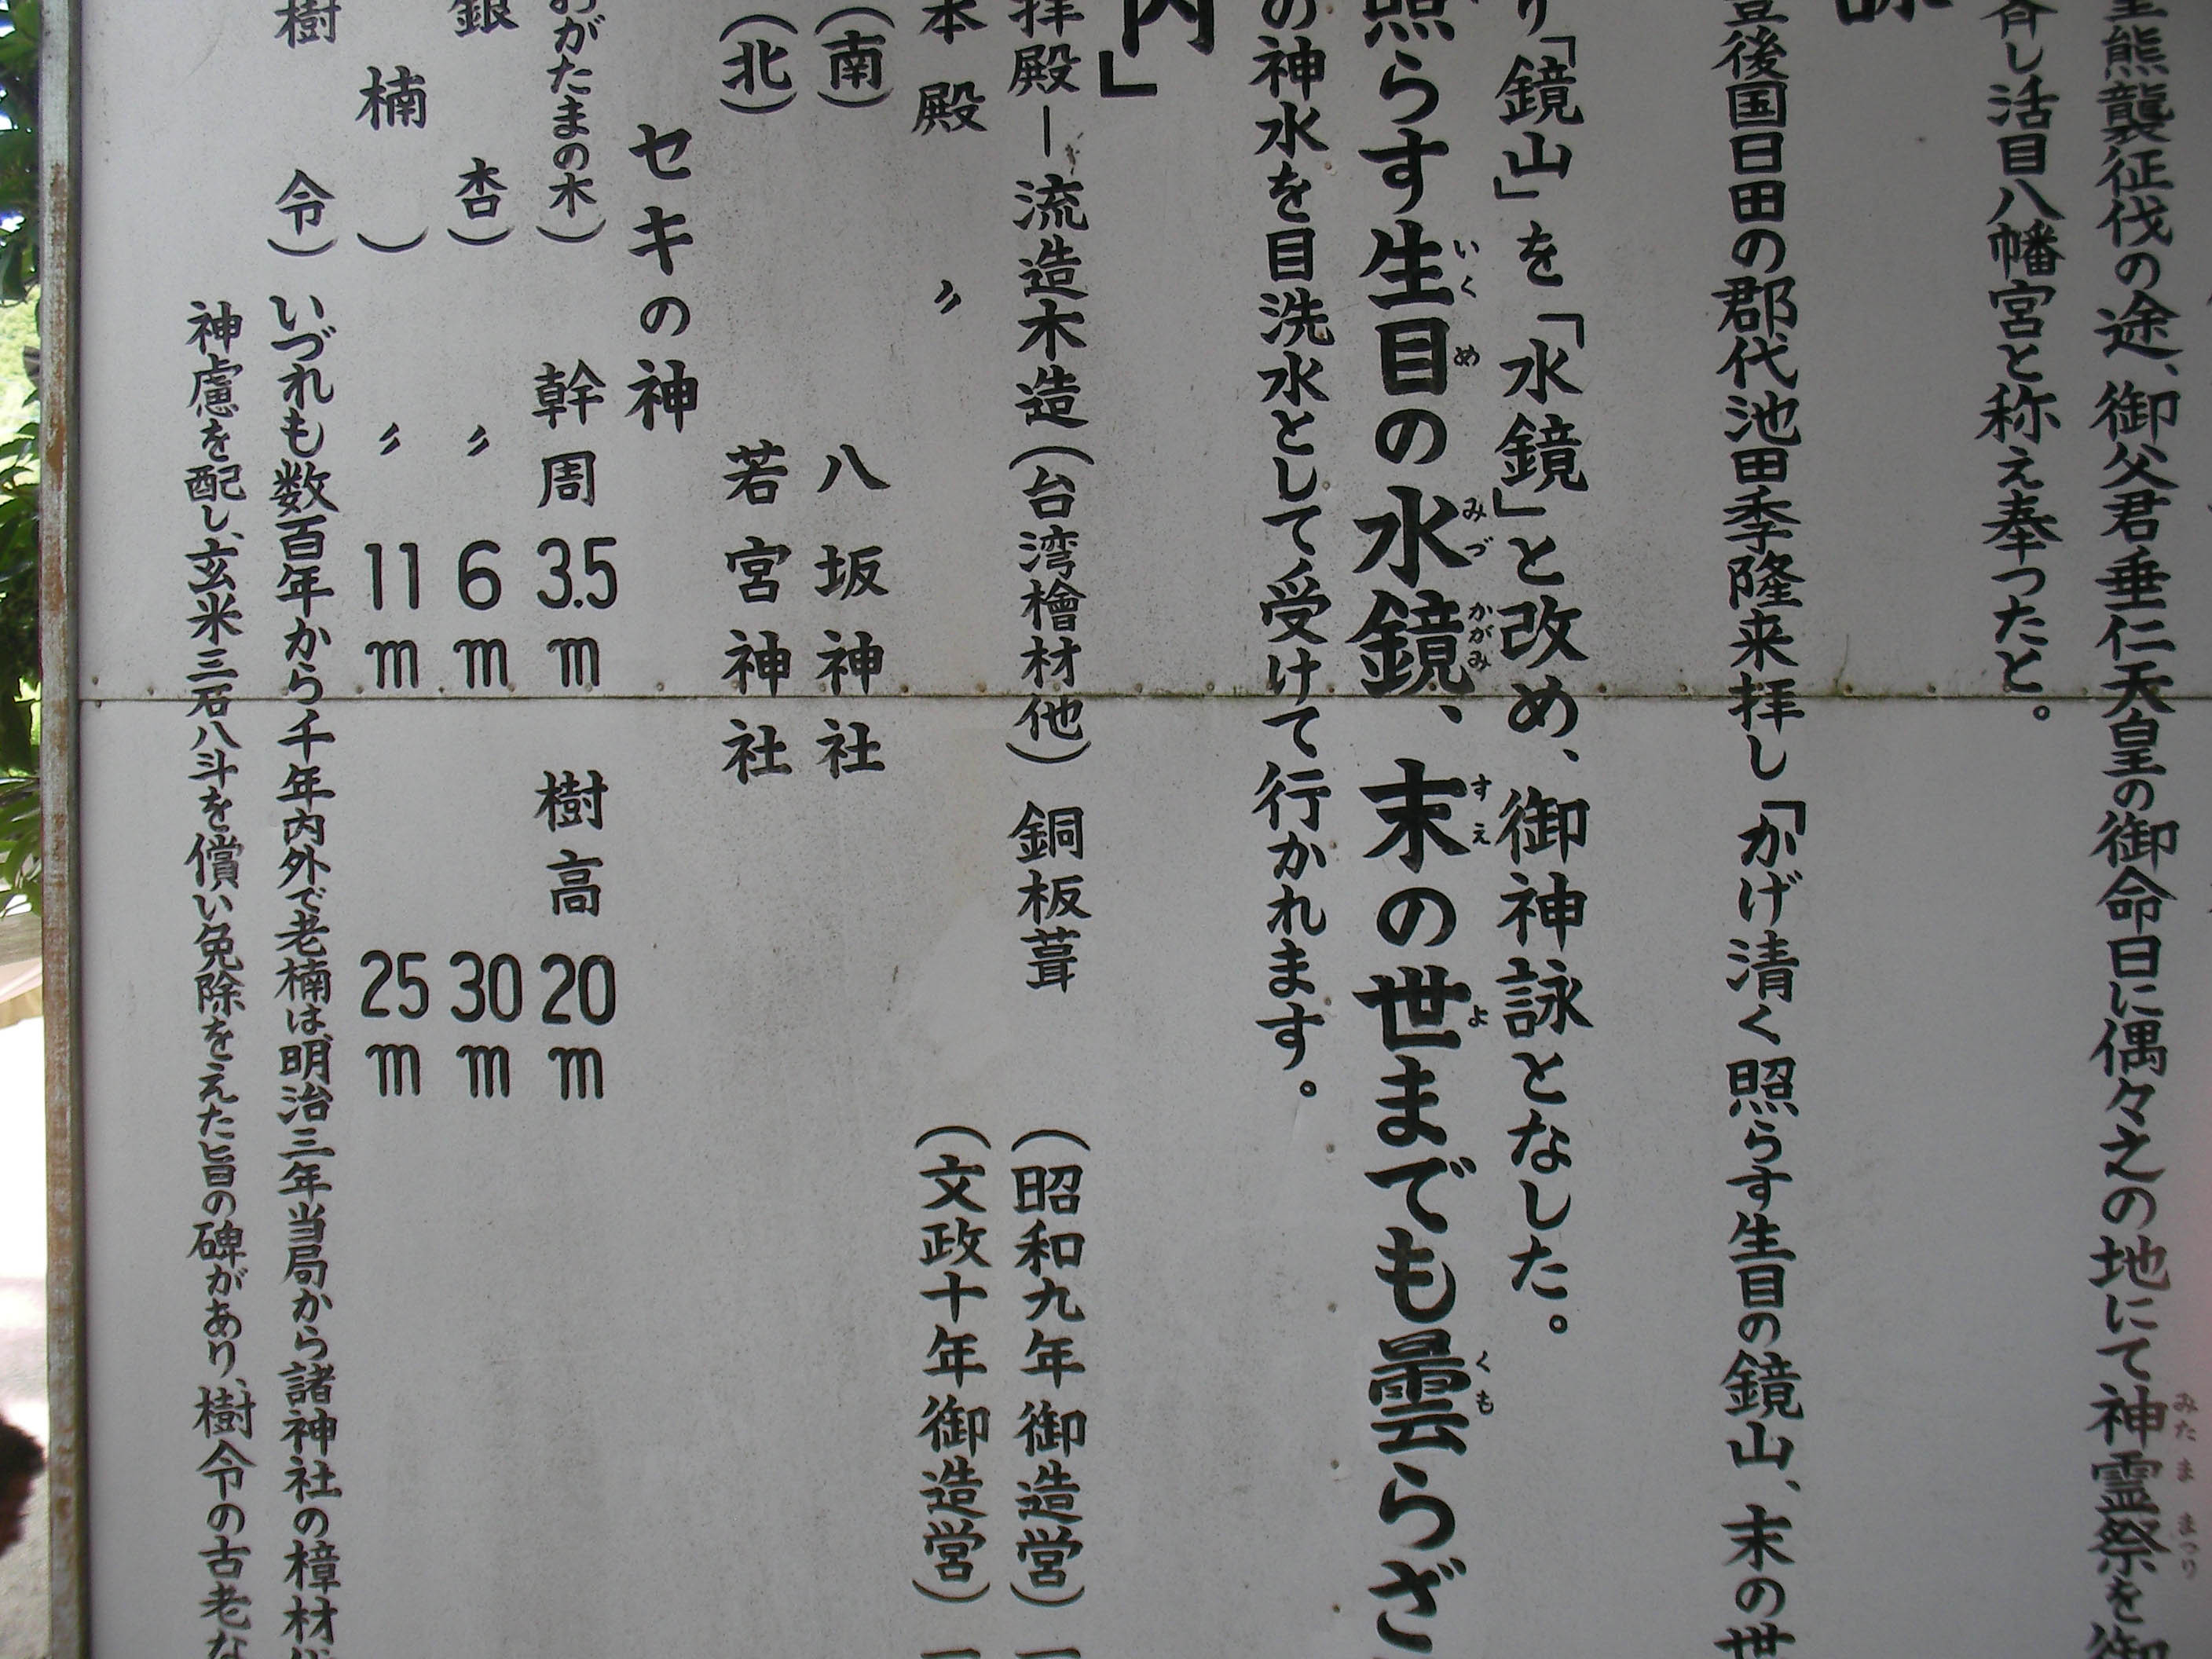 熊襲征伐の途、御父君垂仁天皇の御命日に偶々之の地にて神霊祭を御
みたままつり
斉し活目八幡宮と称え奉つたと。
詠
豊後国日田の郡代池田季隆来拝し「かげ清く照らす生目の鏡山、末の世
り「鏡山」を「水鏡」と改め、御神詠となした。
照らす生目の水鏡、末の世までも曇らざ
いくめ みづかがみ すえ よ くも
の神水を目洗水として受けて行かれます。
内」
拝殿ー流造木造(台湾檜材他)銅板葺 (昭和九年御造営)
本殿 〃 (文政十年御造営)
(南) 八坂神社
(北) 若宮神社
セキの神
おがたまの木) 幹周3.5m 樹高20m
銀杏) 〃 6m 30m
楠) 〃 11m 25m
樹令) いづれも数百年から千年内外で老楠は、明治三年当局から諸神社の樟材
神慮を配し、玄米三石八斗を償い免除をえた旨の碑があり、樹令の古老な